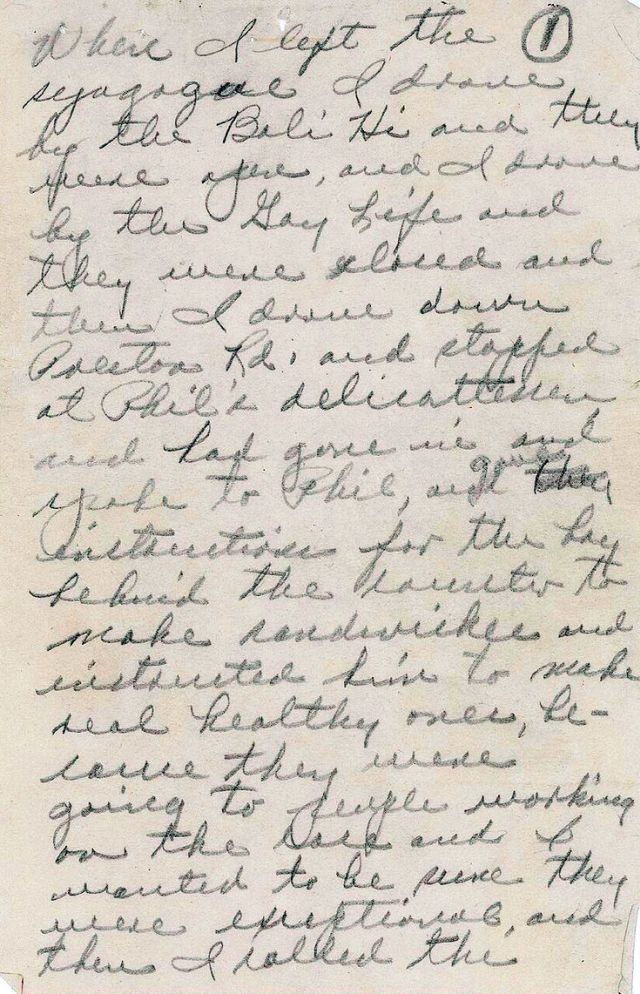 Where I left the ①
synagogue I drove
by the Bali Hi and they
were open, and I drove
by the Gay Life and
they were closed and
then I drove down
Preston Rd. and stopped
at Phil's delicattessen
and had gone in and
spoke to Phil, and gave
instructions for the boy
behind the counter to
make sandwiches and
instructed him to make
real healthy ones, be-
cause they were
going to people working
on the case and I
wanted to be sure they
were exceptional, and
then I called the